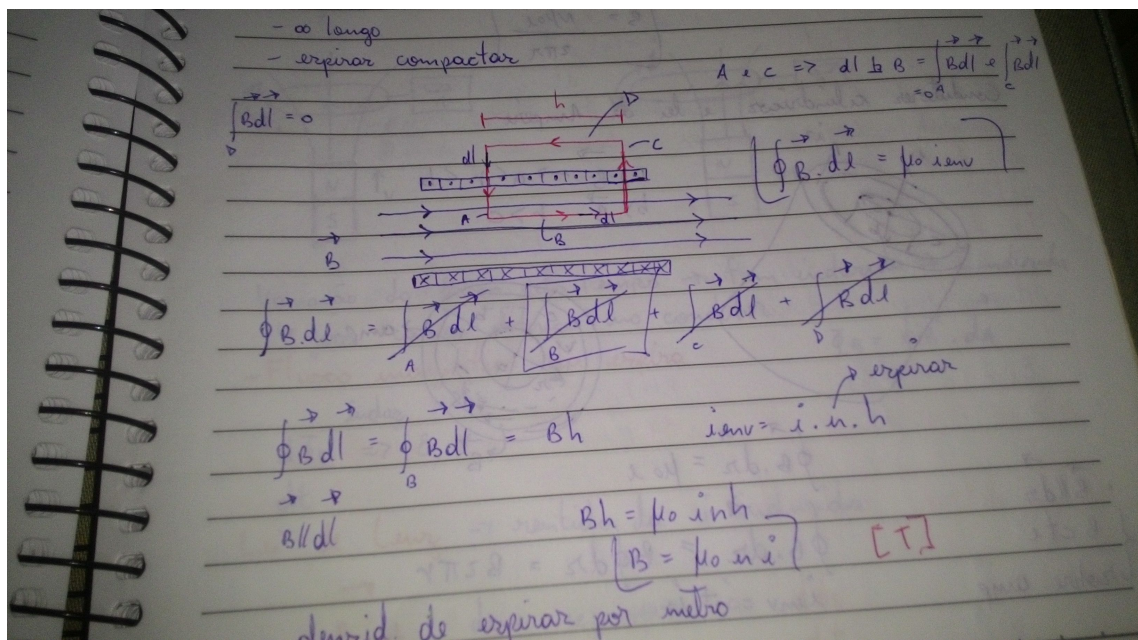 - ∞ longo
- espiras compactas
A e C => dl ⊥ B = ∫A B⃗dl⃗ e ∫C B⃗dl⃗ = 0
∫D B⃗dl⃗ = 0
h
D
dl
C
∮B⃗.dl⃗ = μ0 ienv
A
dl
B
B⃗
∮B⃗.dl⃗ = ∫A B⃗dl⃗ + ∫B B⃗dl⃗ + ∫C B⃗dl⃗ + ∫D B⃗dl⃗
espiras
∮B⃗dl⃗ = ∮B B⃗dl⃗ = Bh
ienv = i.n.h
B⃗//dl⃗
Bh = μ0 inh
B = μ0 n i
[T]
densid. de espiras por metro